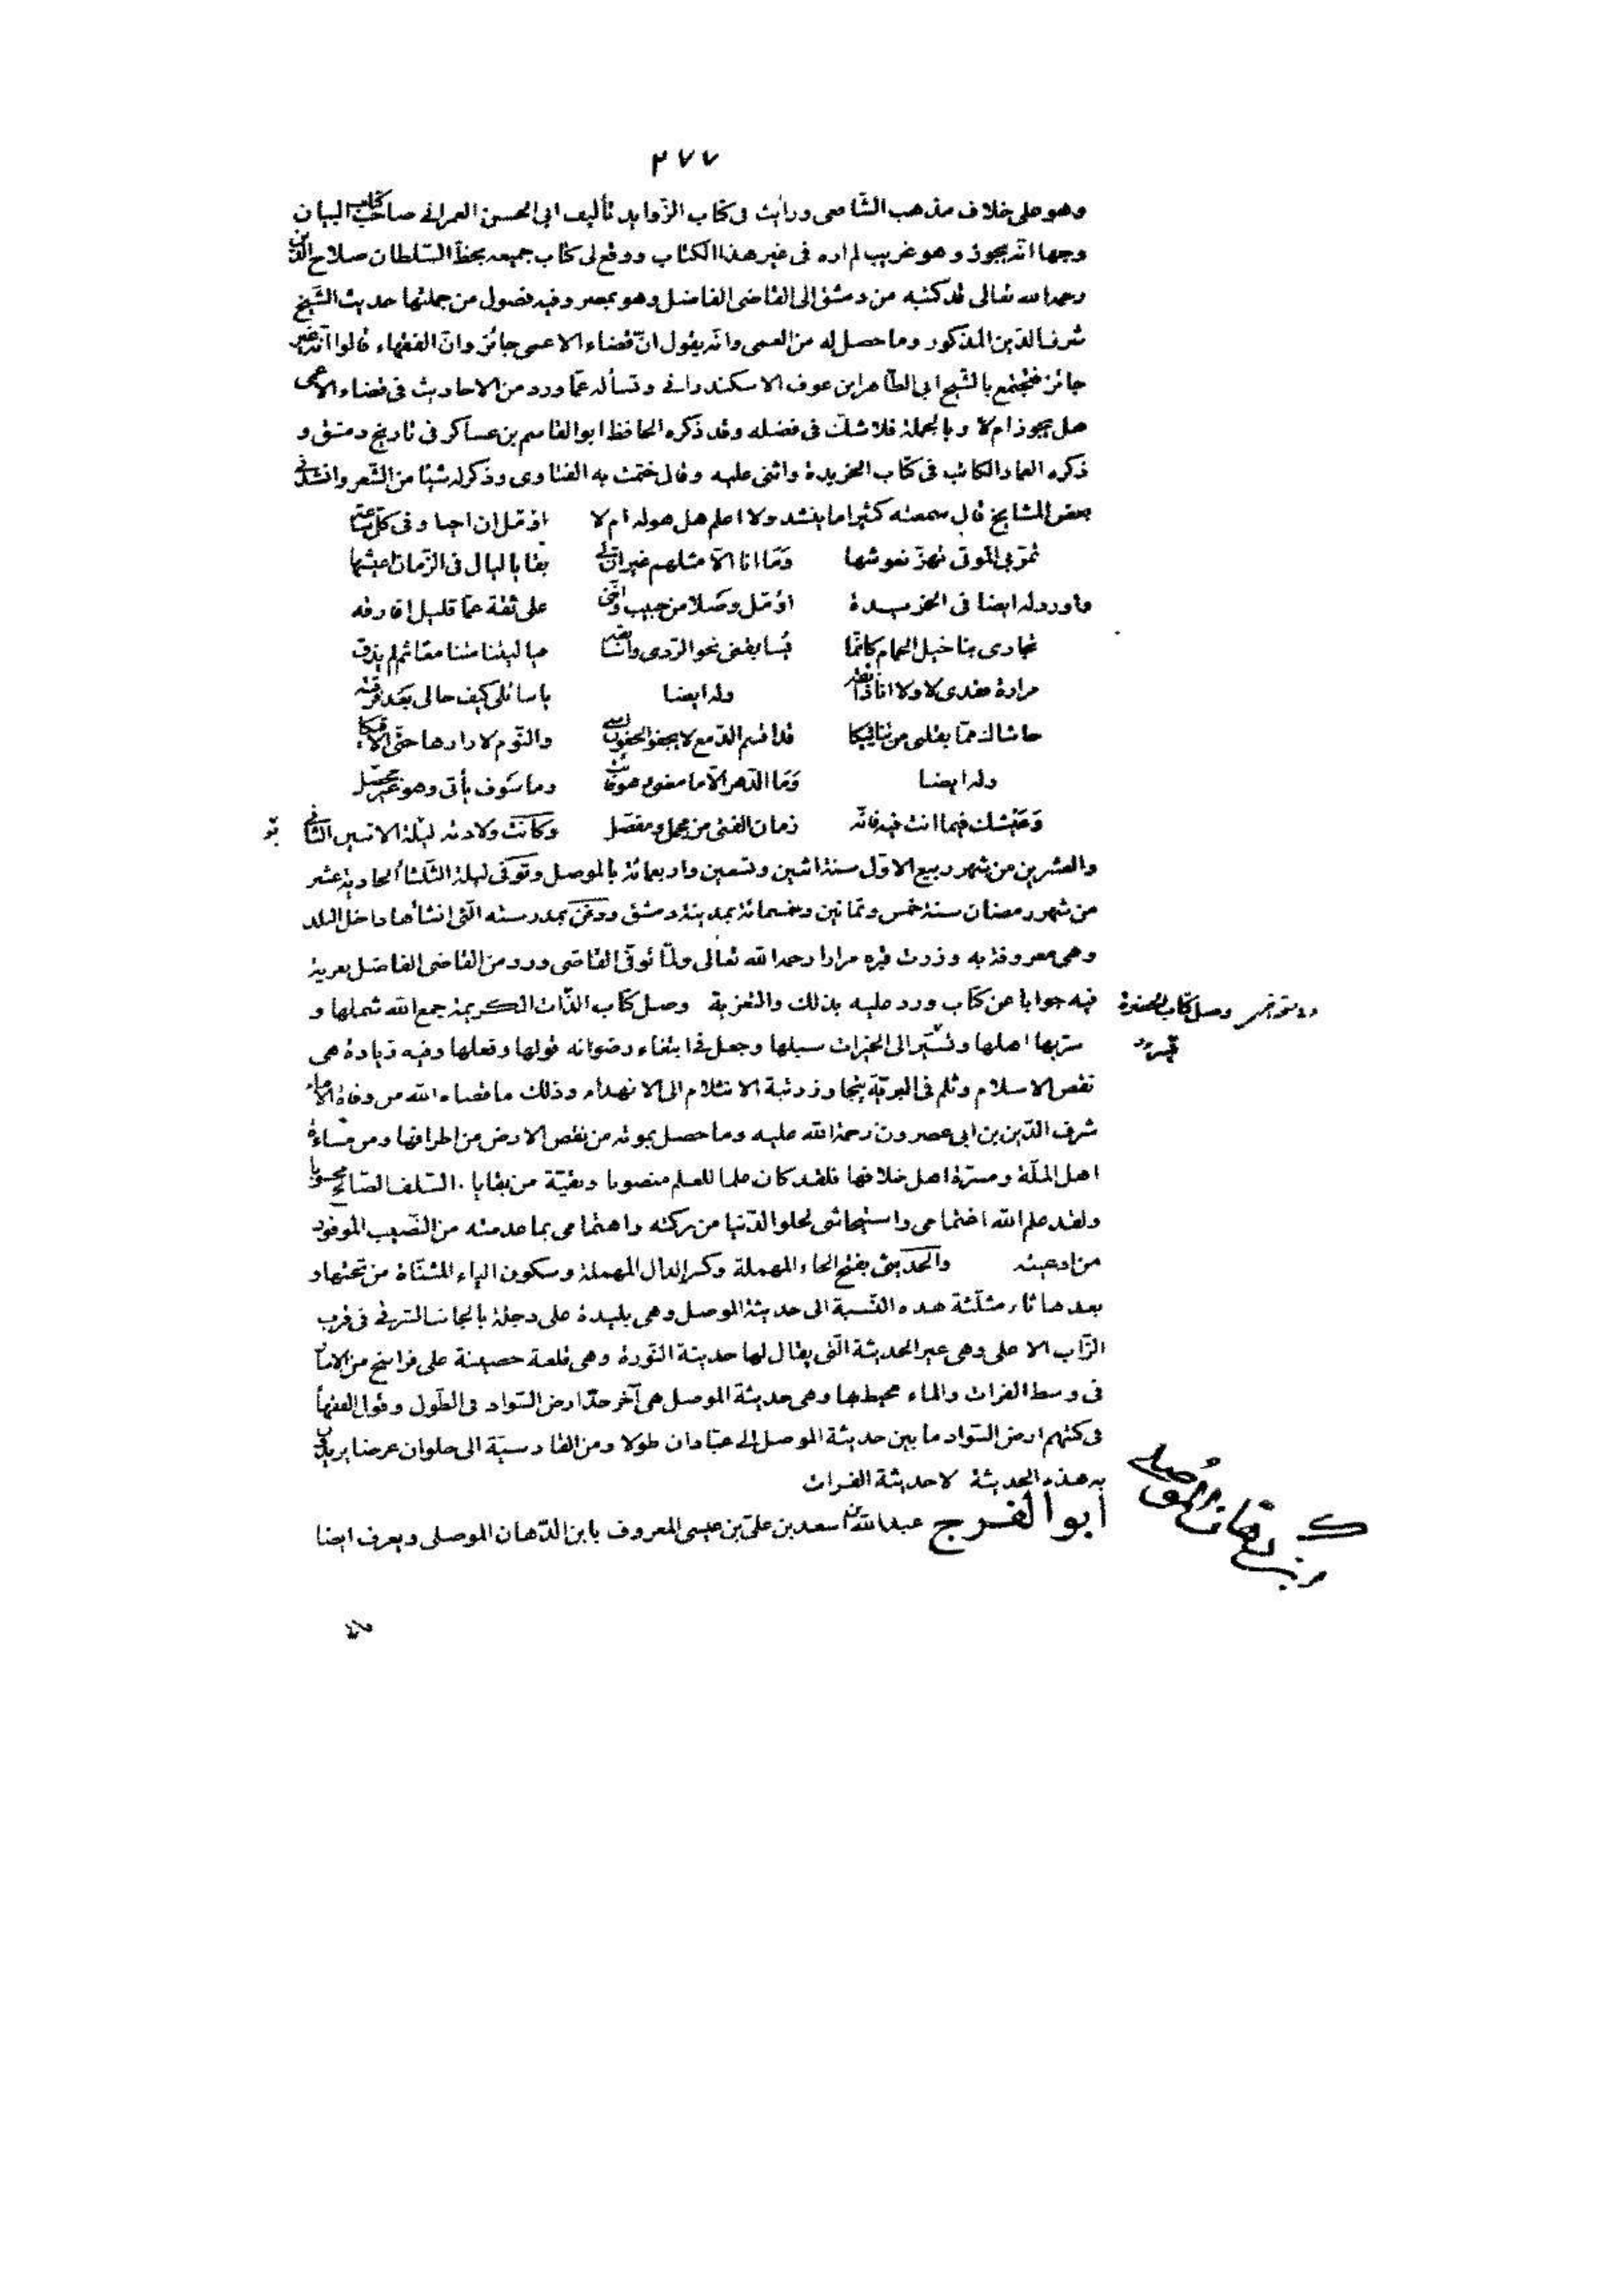 ٢٧٧
وهو على خلاف مذهب الشّافعى ورايت فى كتاب الزّوايد تأليف ابى الحسن العمرانى صاحب كتاب البيان
وجها انّه يجوز وهو غريب لم اره فى غير هذا الكتاب ووقع لى كتاب جميعه بخطّ السّلطان صلاح الدّين
رحمه الله تعالى قد كتبه من دمشق الى القاضى الفاضل وهو بمصر وفيه فصول من جملتها حديث الشّيخ
شرف الدّين المذكور وما حصل له من العمى وانّه يقول انّ قضاء الاعمى جائز وانّ الفقهاء قالوا انّه غير
جائز فتجتمع بالشّيخ ابى الطّاهر ابن عوف الاسكندرانى وتسأله عمّا ورد من الاحاديث فى قضاء الاعمى
هل يجوز ام لا وبالجملة فلا شك فى فضله وقد ذكره الحافظ ابو القاسم بن عساكر فى تاريخ دمشق و
ذكره العماد الكاتب فى كتاب الخريدة واثنى عليه وقال ختمت به الفتاوى وذكر له شيئا من الشّعر وانشدنى
بعض المشايخ قال سمعته كثيرا ما ينشد ولا اعلم هل هو له ام لا اؤمّل ان احيا وفى كلّ ساعة
تمرّ بى الموتى تهزّ نعوشها وما انا الّا مثلهم غير انّ لى بقايا ليال فى الزّمان اعيشها
واورد له ايضا فى الخريدة اؤمّل وصلا من حبيب وانّنى على ثقة عمّا قليل افارقه
تجارى بنا خيل الحمام كانّما يسابقنى نحو الرّدى واسابقه فيا ليتنا متنا معا ثم لم يذق
مرارة فقدى لا ولا انا ذائقه وله ايضا يا سائلى كيف حالى بعد فرقته
حاشاك ممّا بقلبى من تنائيكا قد اقسم الدّمع لا يجفو الجفون اسى والنّوم لا زارها حتّى الاقيكا
وله ايضا وما الدّهر الّا ما مضى وهو فائت وما سوف يأتى وهو غير محصّل
وعيشك فيما انت فيه فانّه زمان الفتى من مجمل ومفصّل وكانت ولادته ليلة الاثنين الثّانى
والعشرين من شهر ربيع الاوّل سنة اثنين وتسعين واربعمائة بالموصل وتوفّى ليلة الثّلثا الحادية عشر
من شهر رمضان سنة خمس وثمانين وخمسمائة بمدينة دمشق ودفن بمدرسته الّتى انشأها داخل البلد
وهى معروفة به وزرت قبره مرارا رحمه الله تعالى ولمّا توفّى القاضى ورد من القاضى الفاضل بعرية
فيه جوابا عن كتاب ورد عليه بذلك والتعزية وصل كتاب الذّات الكريمة جمع الله شملها و
سرّ بها اهلها ويسّر الى الخيرات سبلها وجعل فى ابتغاء رضوانه قولها وفعلها وفيه زيادة هى
نقص الاسلام وثلم فى البريّة يتجاوز رتبة الانثلام الى الانهدام وذلك ما قضاه الله من وفاة الامام
شرف الدّين بن ابى عصرون رحمة الله عليه وما حصل بموته من نقص الارض من اطرافها ومن مساءة
اهل الملّة ومسرّة اهل خلافها فلقد كان علما للعلم منصوبا وبقيّة من بقايا السّلف الصّالح محسوبا
ولقد علم الله اغتمامى واستيحاشى لخلو الدّنيا من بركته واهتمامى بما عدمته من النّصيب الموفور
من ادعيته والحديثى بفتح الحاء المهملة وكسر الدال المهملة وسكون الياء المثنّاة من تحتها و
بعدها ثاء مثلّثة هذه النّسبة الى حديثة الموصل وهى بليدة على دجلة بالجانب الشرقى فى قرب
الزّاب الاعلى وهى غير الحديثة الّتى يقال لها حديثة النّورة وهى قلعة حصينة على فراسخ من الانبار
فى وسط الفرات والماء محيط بها وهى حديثة الموصل هى آخر حدّ ارض السّواد فى الطّول وقول الفقهاء
فى كتبهم ارض السّواد ما بين حديثة الموصل الى عبّادان طولا ومن القادسيّة الى حلوان عرضا يريدون
به هذه الحديثة لا حديثة الفرات
ابو الفرج عبد الله بن اسعد بن علىّ بن عيسى المعروف بابن الدّهان الموصلى ويعرف ايضا